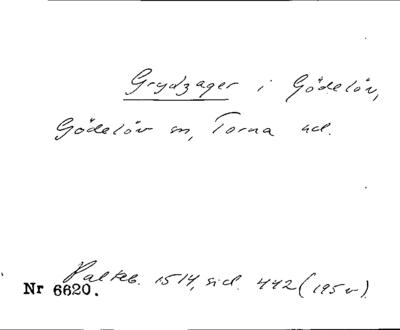 Grydzager i Gödelöv,
Gödelöv sn, Torna hd.
Palteb. 1514, sid. 442 (195 v).
Nr 6620.